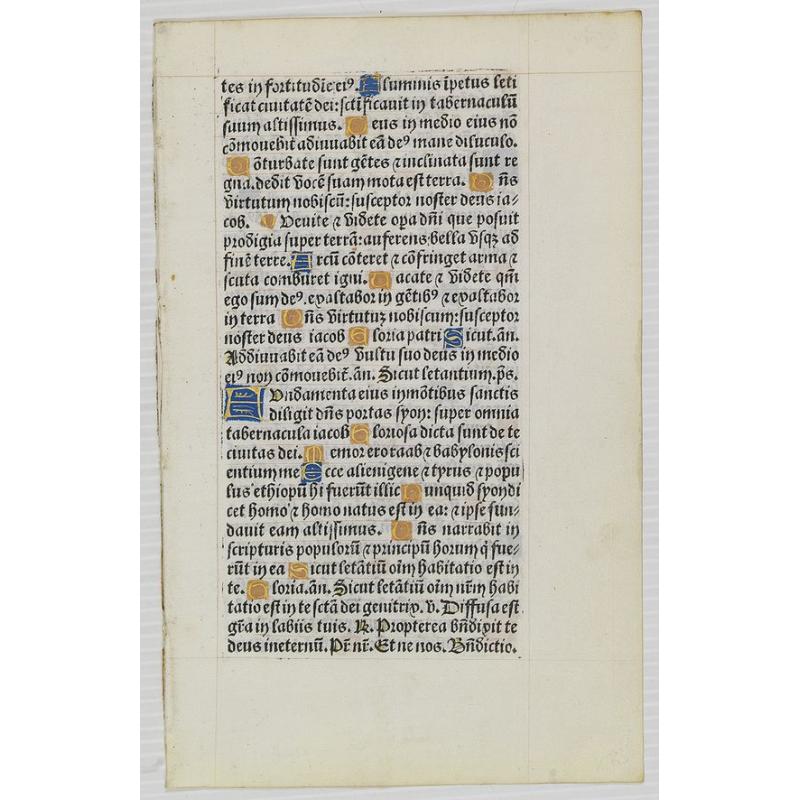 tes in fortitudīe eiꝰ. Fluminis īpetus leti
ficat ciuitatē dei: sctīficauit in tabernaculū
suum altissimus. Deus in medio eius nō
cōmouebit̄ adiuuabit eā deꝰ mane diluculo.
Cōturbate sunt gētes ⁊ inclinata sunt re
gna. dedit vocē suam mota est terra. Dn̄s
virtutum nobiscū: susceptor noster deus ia-
cob. Venite ⁊ videte oꝑa dn̄i que posuit
prodigia super terrā: auferens bella vsqꝫ ad
finē terre. Arcū cōteret ⁊ cōfringet arma ⁊
scuta comburet igni. Uacate ⁊ videte qm̄
ego sum deꝰ. exaltabor in gētibꝰ ⁊ exaltabor
in terra Dn̄s virtutuꝫ nobiscum: susceptor
noster deus iacob Gloria patri Sicut. an̄.
Addiuuabit eā deꝰ vultu suo deus in medio
eiꝰ non cōmouebit̄. an̄. Sicut letantium. ps̄.
Fundamenta eius in mōtibus sanctis
diligit dn̄s portas syon: super omnia
tabernacula iacob Gloriosa dicta sunt de te
ciuitas dei. Memor ero raab ⁊ babylonis sci
entium me Ecce alienigene ⁊ tyrus ⁊ popu
lus ethiopū hi fuerūt illic Nunquid syon di
cet homo ⁊ homo natus est in ea: ⁊ ipse fun-
dauit eam altissimus. Dn̄s narrabit in
scripturis populorū ⁊ principū horum q̄ fue-
rūt in ea Sicut letātiū oīm habitatio est in
te. Gloria. an̄. Sicut letātiū oīm nr̄m habi
tatio est in te sctā dei genitrix. v. Diffusa est
gr̄a in labiis tuis. ℟. Propterea bn̄dixit te
deus in eternū. Pr̄ nr̄. Et ne nos. Bn̄dictio.